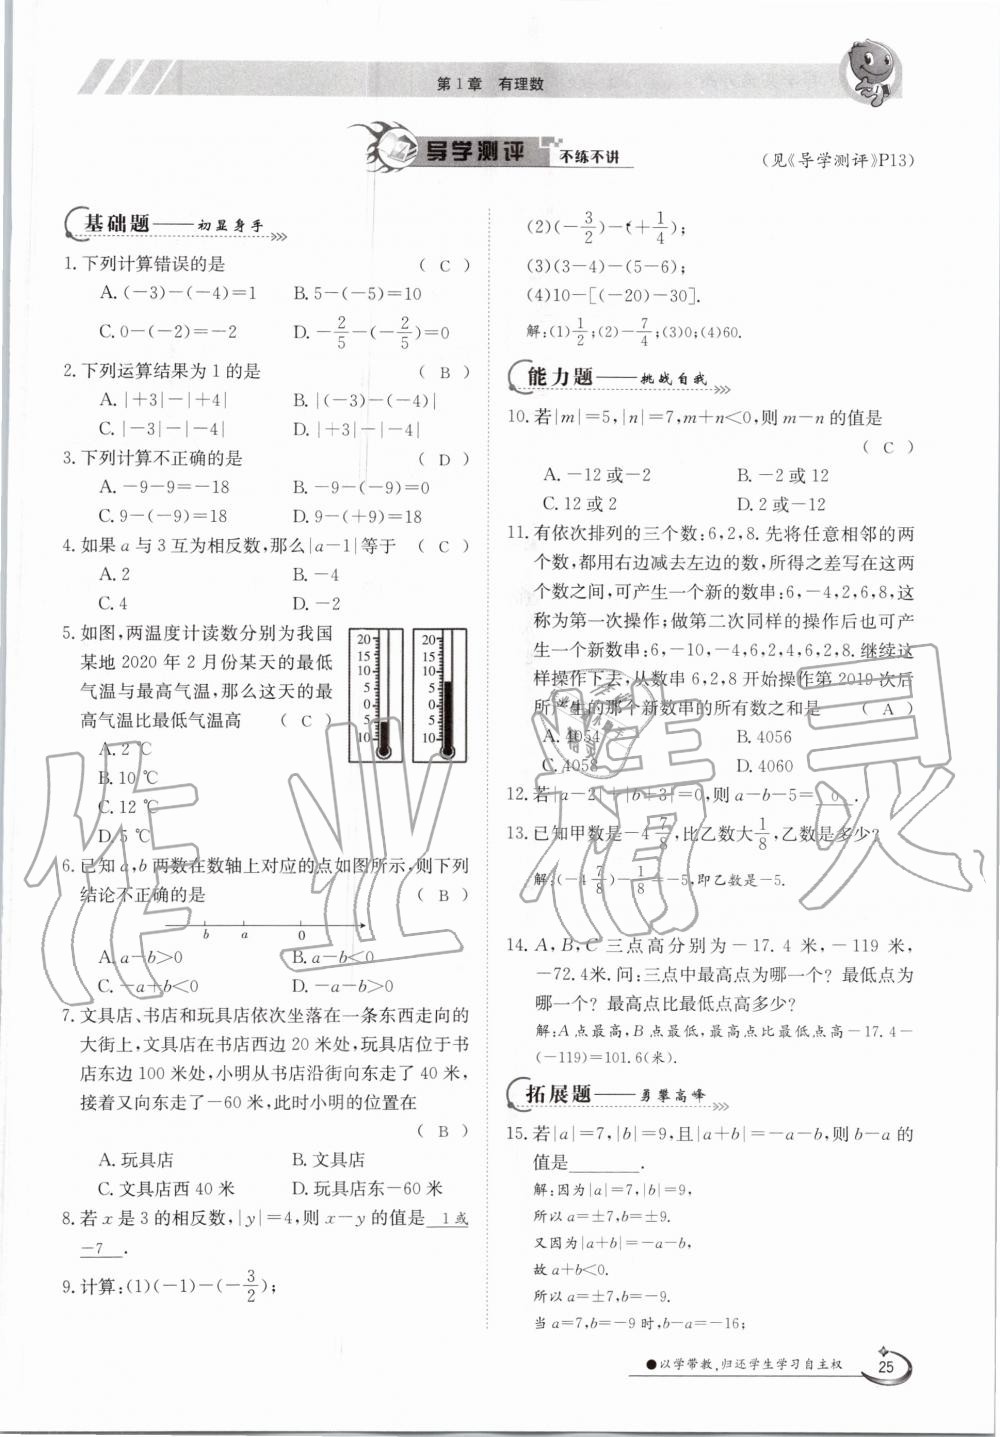 第1章 有理数
导学测评 不练不讲
(见《导学测评》P13)
基础题——初显身手
1.下列计算错误的是 ( C )
A.(-3)-(-4)=1 B.5-(-5)=10
C.0-(-2)=-2 D.-2/5-(-2/5)=0
2.下列运算结果为1的是 ( B )
A.|+3|-|+4| B.|(-3)-(-4)|
C.|-3|-|-4| D.|+3|-|-4|
3.下列计算不正确的是 ( D )
A.-9-9=-18 B.-9-(-9)=0
C.9-(-9)=18 D.9-(+9)=18
4.如果a与3互为相反数,那么|a-1|等于 ( C )
A.2 B.-4
C.4 D.-2
5.如图,两温度计读数分别为我国
某地2020年2月份某天的最低
气温与最高气温,那么这天的最
高气温比最低气温高 ( C )
A.2 ℃
B.10 ℃
C.12 ℃
D.5 ℃
20 15 10 5 0 5 10
20 15 10 5 0 5 10
6.已知a,b两数在数轴上对应的点如图所示,则下列
结论不正确的是 ( B )
b a 0
A.a-b>0 B.a-b<0
C.-a+b<0 D.-a-b>0
7.文具店、书店和玩具店依次坐落在一条东西走向的
大街上,文具店在书店西边20米处,玩具店位于书
店东边100米处,小明从书店沿街向东走了40米,
接着又向东走了-60米,此时小明的位置在
( B )
A.玩具店 B.文具店
C.文具店西40米 D.玩具店东-60米
8.若x是3的相反数,|y|=4,则x-y的值是 1或
-7 .
9.计算:(1)(-1)-(-3/2);
(2)(-3/2)-(+1/4);
(3)(3-4)-(5-6);
(4)10-[(-20)-30].
解:(1)1/2;(2)-7/4;(3)0;(4)60.
能力题——挑战自我
10.若|m|=5,|n|=7,m+n<0,则m-n的值是
( C )
A.-12或-2 B.-2或12
C.12或2 D.2或-12
11.有依次排列的三个数:6,2,8.先将任意相邻的两
个数,都用右边减去左边的数,所得之差写在这两
个数之间,可产生一个新的数串:6,-4,2,6,8,这
称为第一次操作;做第二次同样的操作后也可产
生一个新数串:6,-10,-4,6,2,4,6,2,8.继续这
样操作下去,从数串6,2,8开始操作第2019次后
所产生的那个新数串的所有数之和是 ( A )
A.4054 B.4056
C.4058 D.4060
12.若|a-2|+|b+3|=0,则a-b-5= 0 .
13.已知甲数是-4 7/8,比乙数大1/8,乙数是多少?
解:(-4 7/8)-1/8=-5,即乙数是-5.
14.A,B,C三点高分别为-17.4米,-119米,
-72.4米.问:三点中最高点为哪一个? 最低点为
哪一个? 最高点比最低点高多少?
解:A点最高,B点最低,最高点比最低点高-17.4-
(-119)=101.6(米).
拓展题——勇攀高峰
15.若|a|=7,|b|=9,且|a+b|=-a-b,则b-a的
值是______.
解:因为|a|=7,|b|=9,
所以a=±7,b=±9.
又因为|a+b|=-a-b,
故a+b<0.
所以a=±7,b=-9.
当a=7,b=-9时,b-a=-16;
●以学带教,归还学生学习自主权
25
作业精灵